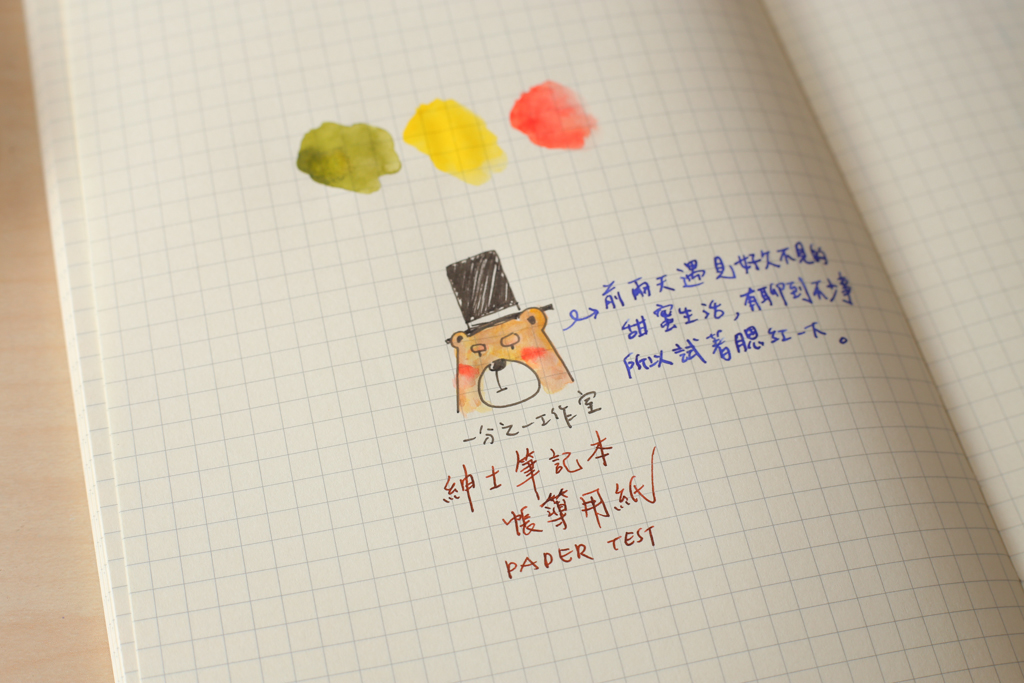 前兩天遇見好久不見的
甜蜜生活，有聊到不少事
所以試著腮紅一下。
一分之一工作室
紳士筆記本
帳簿用紙
PAPER TEST